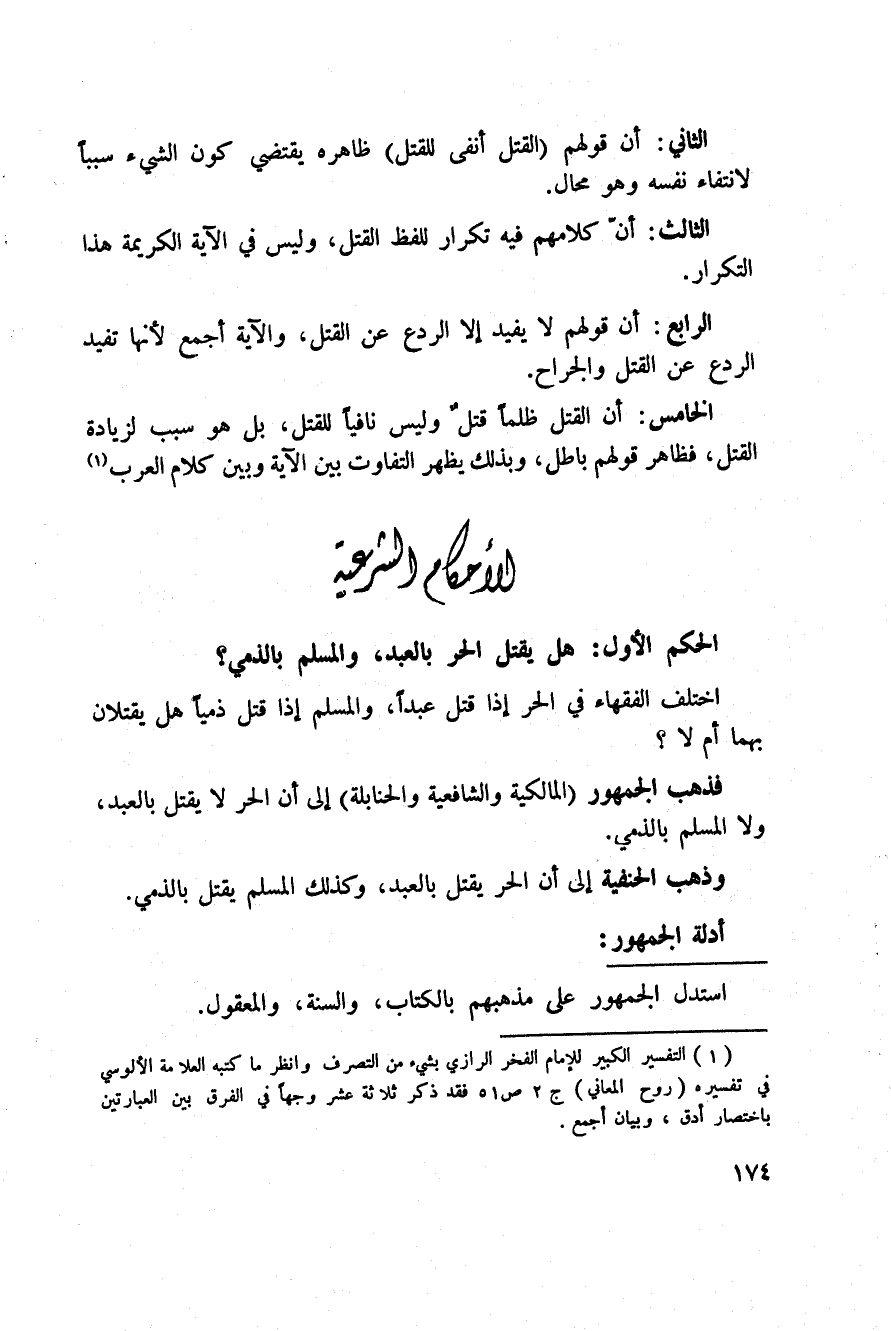 الثاني: أن قولهم (القتل أنفى للقتل) ظاهره يقتضي كون الشيء سبباً
لانتفاء نفسه وهو محال.
الثالث: أنّ كلامهم فيه تكرار للفظ القتل، وليس في الآية الكريمة هذا
التكرار.
الرابع: أن قولهم لا يفيد إلا الردع عن القتل، والآية أجمع لأنها تفيد
الردع عن القتل والجراح.
الخامس: أن القتل ظلماً قتلٌ وليس نافياً للقتل، بل هو سبب لزيادة
القتل، فظاهر قولهم باطل، وبذلك يظهر التفاوت بين الآية وبين كلام العرب(١)
الأحكام الشرعية
الحكم الأول: هل يقتل الحر بالعبد، والمسلم بالذمي؟
اختلف الفقهاء في الحر إذا قتل عبداً، والمسلم إذا قتل ذمياً هل يقتلان
بهما أم لا ؟
فذهب الجمهور (المالكية والشافعية والحنابلة) إلى أن الحر لا يقتل بالعبد،
ولا المسلم بالذمي.
وذهب الحنفية إلى أن الحر يقتل بالعبد، وكذلك المسلم يقتل بالذمي.
أدلة الجمهور:
استدل الجمهور على مذهبهم بالكتاب، والسنة، والمعقول.
(١) التفسير الكبير للإمام الفخر الرازي بشيء من التصرف وانظر ما كتبه العلامة الألوسي
في تفسيره (روح المعاني) ج ٢ ص٥١ فقد ذكر ثلاثة عشر وجهاً في الفرق بين العبارتين
باختصار أدق ، وبيان أجمع .
١٧٤